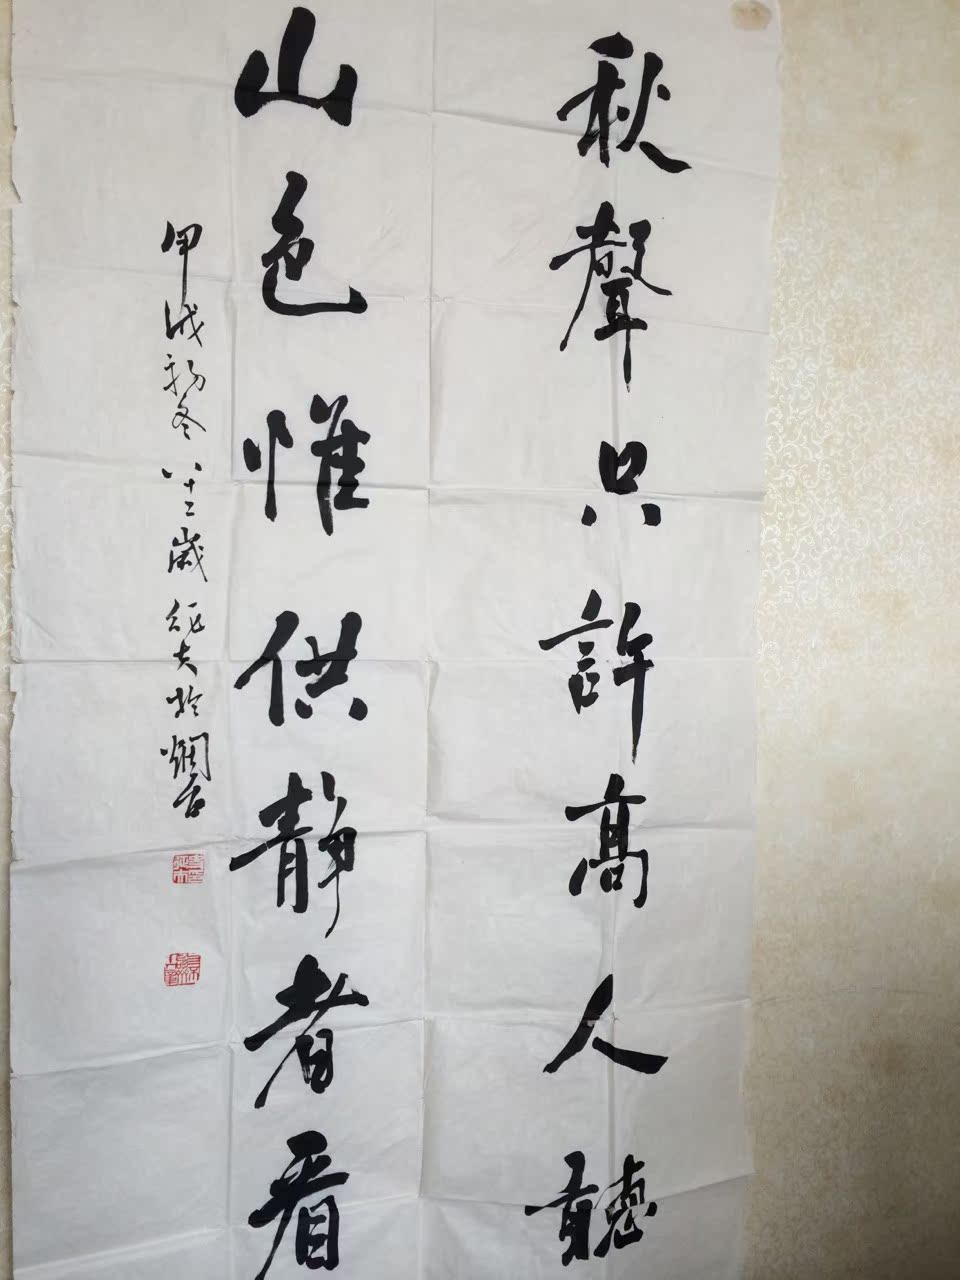 秋聲只許高人聽
山色惟供靜者看
甲戌初冬八十二歲 於烟台